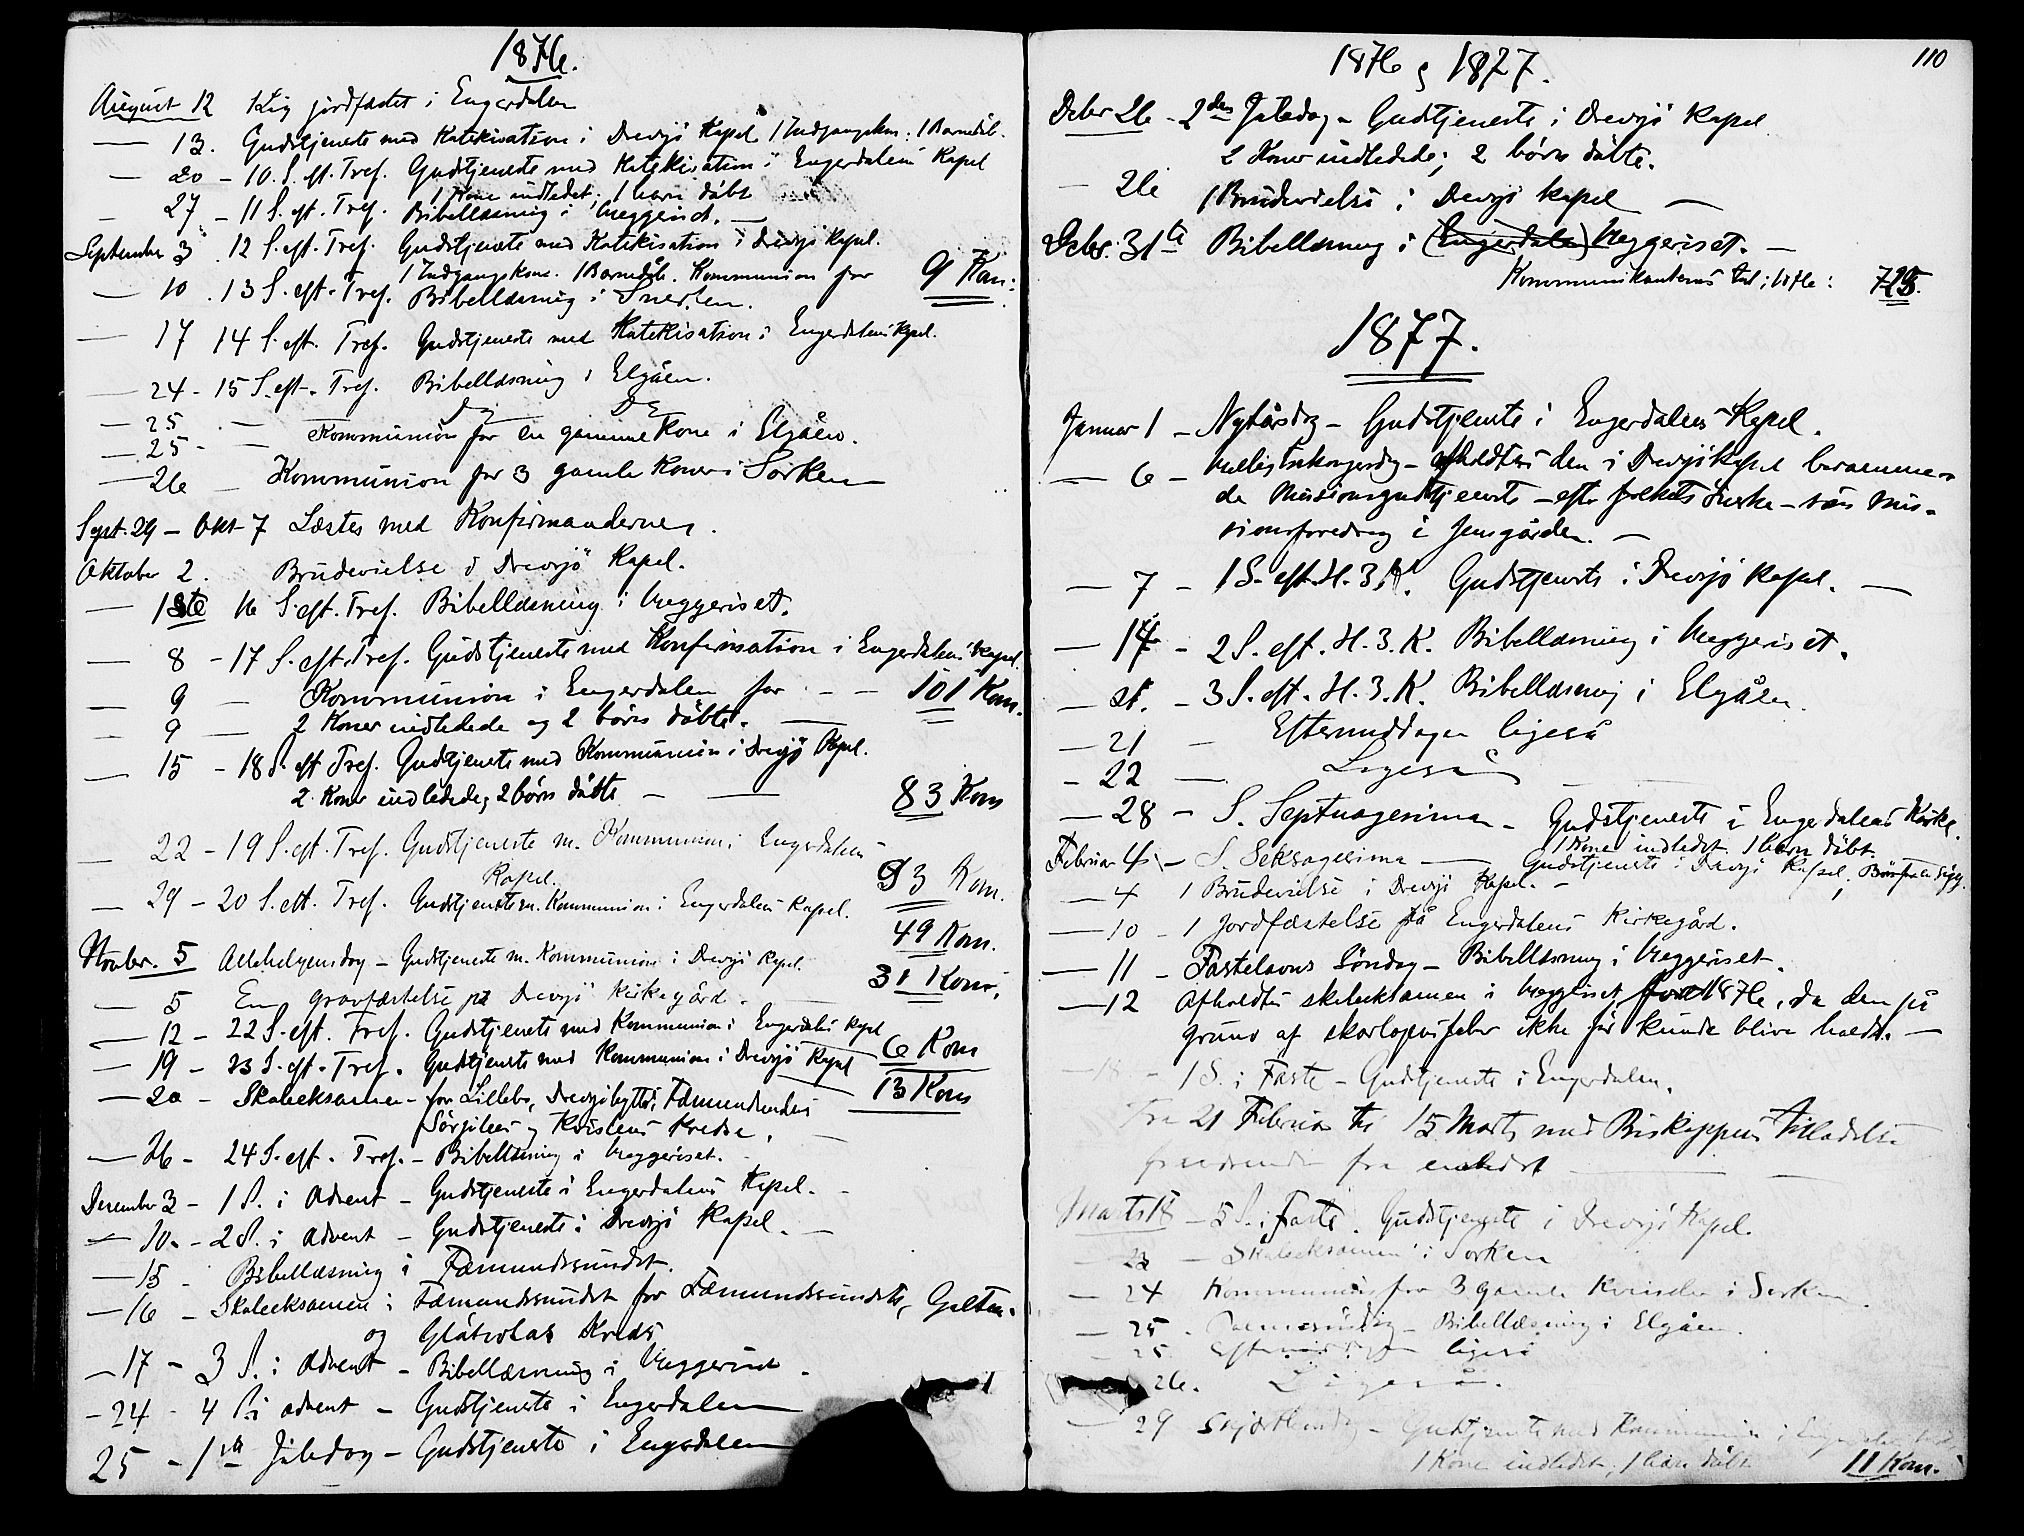 1876.
August 12 1 Lig jordfæstet i Engerdalen
— 13. Gudstjeneste med Katekisation i Drevsjö Kapel 1 Indgangskon. 1 Barnedåb.
— 20 – 10. S. eft. Tref. Gudstjeneste med Katekisation i Engerdalens Kapel
1 Kone indledet; 1 barn döbt
– 27 – 11 S. eft. Tref. Bibellæsning i Hreggeriset. —
September 3 . 12 S. eft. Tref. Gudstjeneste med Katekisation i Drevsjö Kapel.
1 Indgangskone. 1 Barnedåb. Kommunion for 9 Kom:
— 10 . 13 S. eft. Tref. Bibellæsning i Snerten.
— 17 14 S. eft. Tref. Gudstjeneste med Katekisation i Engerdalens Kpel.
— 24 – 15 S. eft. Tref. Bibellæsning i Elgåen.
— 25 . — Do Do
— 25 – — Kommunion for en gammel Kone i Elgåen.
— 26 — Kommunion for 3 gamle Koner i Sorken —
Sept. 29 – Okt 7 Læstes med Konfirmanderne.
Oktober 2. Brudevielse i Drevsjö Kapel.
— 1ste 16 S. eft. Tref. Bibellæsning i Hreggeriset.
— 8 – 17 S. eft. Tref. Gudstjeneste med Konfirmation i Engerdalens Kapel.
— 9 — Kommunion i Engerdalen for – — 101 Kom.
– 9 — 2 Koner indledede og 2 börn döbte. —
— 15 – 18 S. eft Tref. Gudstjeneste med Kommunion i Drevsjö Kapel.
2 Koner indledede; 2 börn döbte — — 83 Kom
— 22 – 19 S. eft. Tref. Gudstjeneste m. Kommunion i Engerdalens
Kapel. 93 Kom.
— 29 – 20 S. eft. Tref. Gudstjeneste m. Kommunion i Engerdalens Kapel.
49 Kom.
Novbr. 5 Allehelgensdag – Gudstjeneste m. Kommunion i Drevsjö Kapel.
31 Kom.
— 5 En gravfæstelse på Drevsjö Kirkegård.
— 12 – 22 S. eft. Tref. Gudstjeneste med Kommunion i Engerdalens Kapel
6 Kom
— 19 – 23 S. eft. Tref. Gudstjeneste med Kommunion i Drevsjö Kapel
13 Kom
— 20 – Skoleeksamen – for Lillebo, Drevsjöhytte, Fæmundendens
Sörsjöens og Kvislens Kredse. —
— 26 – 24 S. eft. Tref. – Bibellæsning i Hreggeriset.
Desember 3 – 1 S. i Advent – Gudstjeneste i Engerdalens Kapel. –
— 10. – 2 S. i Advent – Gudstjeneste i Drevsjö Kapel. —
— 15 – Bibellæsning i Fæmundssundet.
— 16 – Skoleeksamen i Fæmundssundet for Fæmundssundets, Galten-
og Glötvolas Kreds
— 17 – 3 S. i Advent – Bibellæsning i Hreggeriset .
– 24 – 4 S. i advent – Gudstjeneste i Engerdalen —
25 – 1ste Juledag – Gudstjeneste i Engerdalen
110
1876 og 1877.
Debr 26 – 2den Juledag – Gudstjeneste i Drevsjö Kapel
2 Koner indledede; 2 börn döbte.
— 26 1 Brudevielse i Drevsjö kapel —
Debr. 31te Bibellæsning i (Engerdalen) Hreggeriset. —
Kommunikanternes tal i 1876:
1877.
Januar 1 – Nytårsdag – Gudstjeneste i Engerdalens Kapel.
— 6 – Helligtrekongersdag – afholdtes den i Drevsjö Kapel berammene-
de Missionsgudstjeneste – efter folkets önske – som Mis-
sionsforedrag i Jensgården. —
— 7 – 1 S. eft. H. 3 K. Gudstjeneste i Drevsjö Kapel. —
— 14 – 2 S. eft. H. 3. K. Bibellæsning i Hreggeriset.
— 21. – 3 S. eft. H. 3. K. Bibellæsning i Elgåen.
— 21 – Eftermiddagen ligeså
– 22 — Ligeså
— 28 – S. Septuagesima – Gudstjeneste i Engerdalens Kirke.
1 Kone indledet. 1 barn döbt.
Februar 4 – S. Seksagesima — Gudstjeneste i Drevsjö Kapel.
— 4 1 Brudevielse i Drevsjö Kapel. –
— 10 – 1 Jordfæstelse på Engerdalens Kirkegård.
— 11 – Fastelavns Söndag – Bibellæsning i Hreggeriset.
— 12 Afholdtes skoleeksamen i Hreggeriset for 1876, da den på
grund af skarlagensfeber ikke för kunde blive holdt. —
18 – 1 S. i Faste – Gudstjeneste i Engerdalen.
Fra 21 Februar til 15 Marts med Biskoppens Tilladelse
fraværende fra embedet —
Marts 18 – 5 S. i Faste. Gudstjeneste i Drevsjö Kapel.
23 – Skoleeksamen i Sorken
— 24 Kommunion for 3 gamle Kvinder i Sorken.
— 25 . Palmesöndag – Bibellæsning i Elgåen.
— 25 Eftermiddagen ligeså
26. Ligeså.
— 29 Skjærtorsdag – Gudstjeneste med Kommunion i Engerdalens
1 Kone indledet; 1 barn döbt 11 Kom.